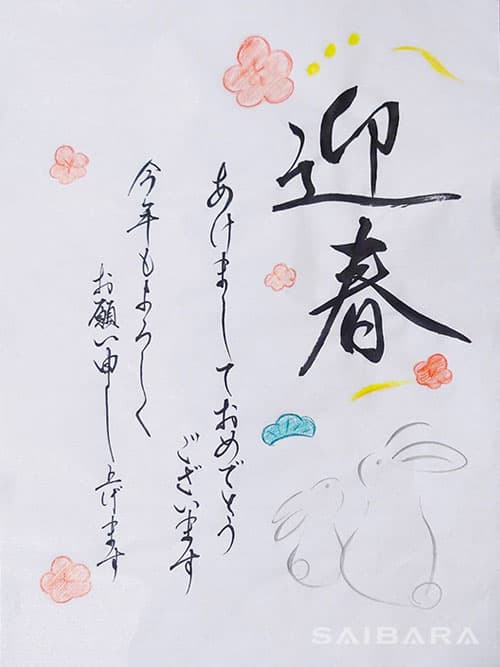 迎春
あけましておめでとう
ございます
今年もよろしく
お願い申し上げます
SAIBARA